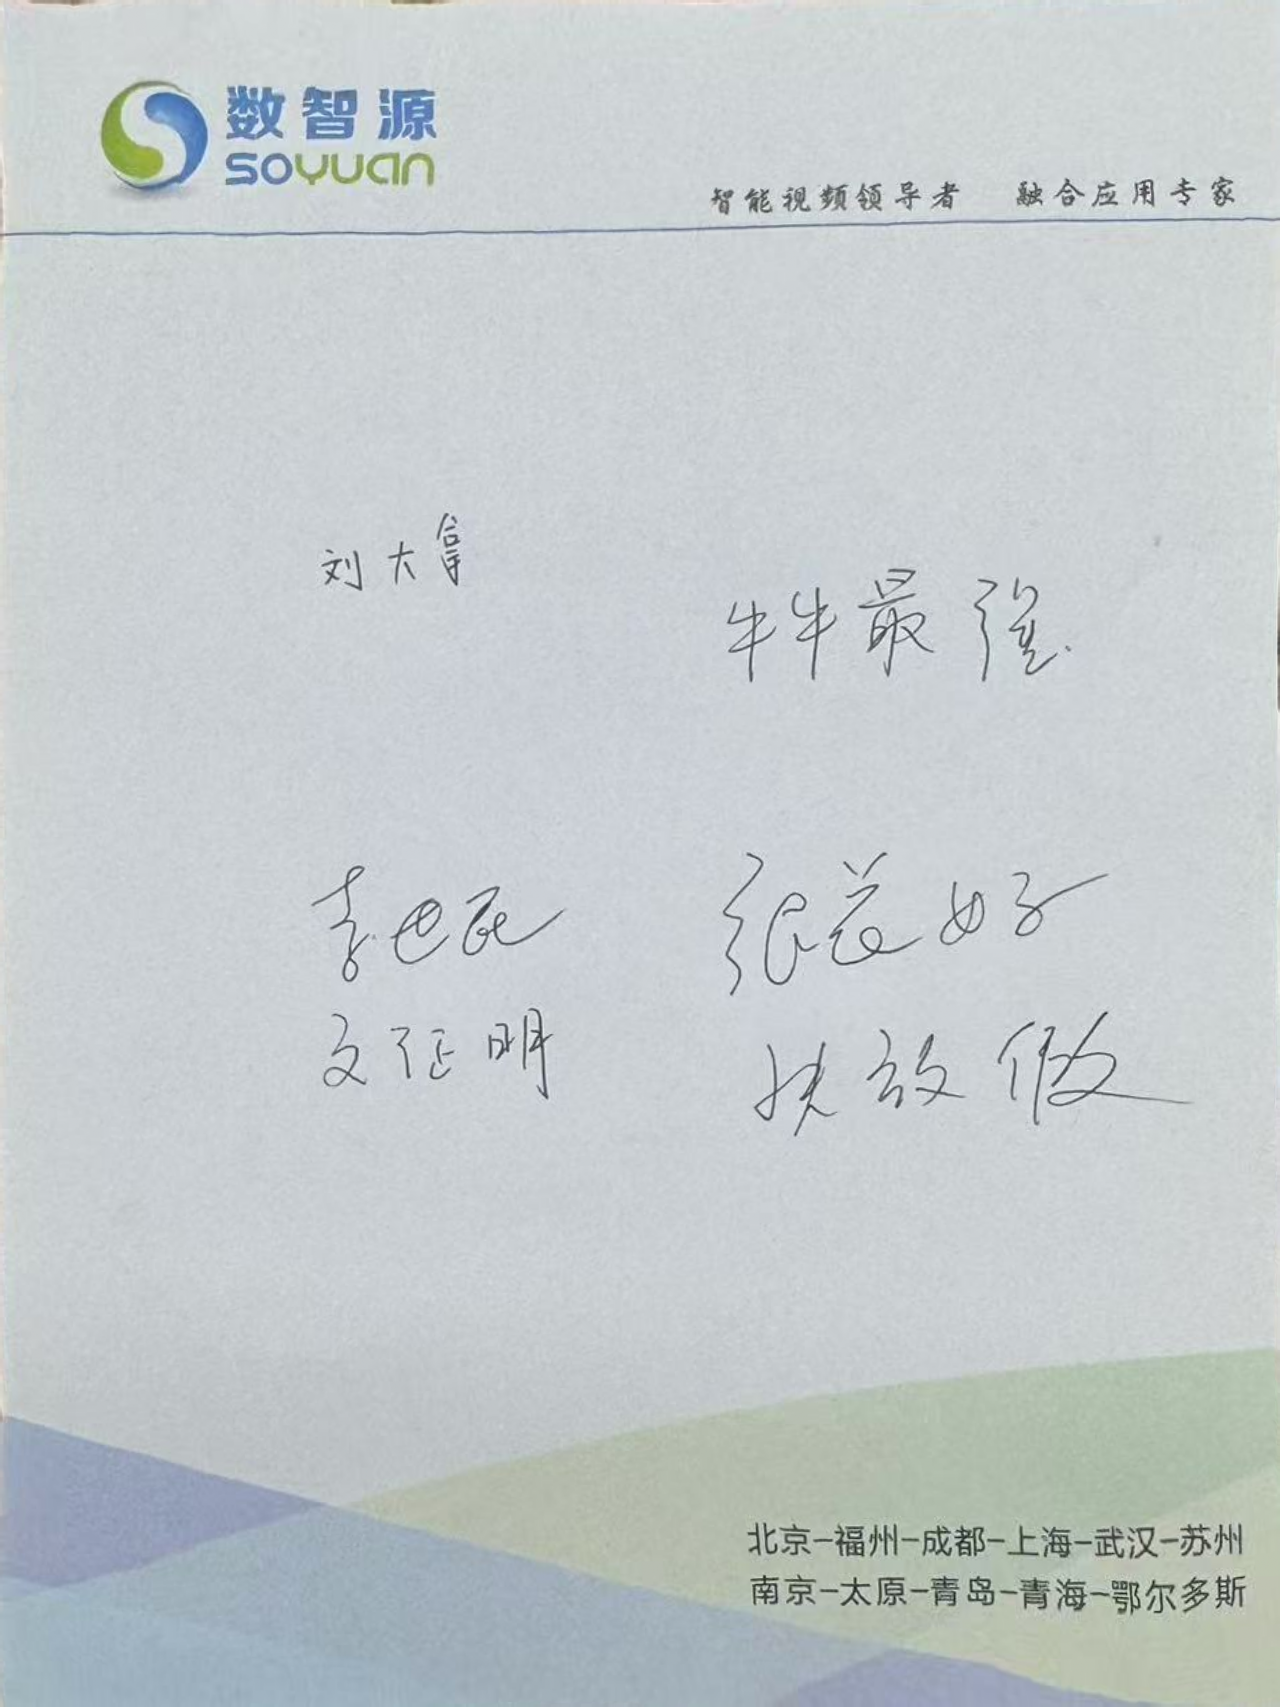 数智源
SOYUAN
智能视频领导者 融合应用专家
刘大拿
牛牛最强
李世民
张芸好
文征明
放假
北京-福州-成都-上海-武汉-苏州
南京-太原-青岛-青海-鄂尔多斯